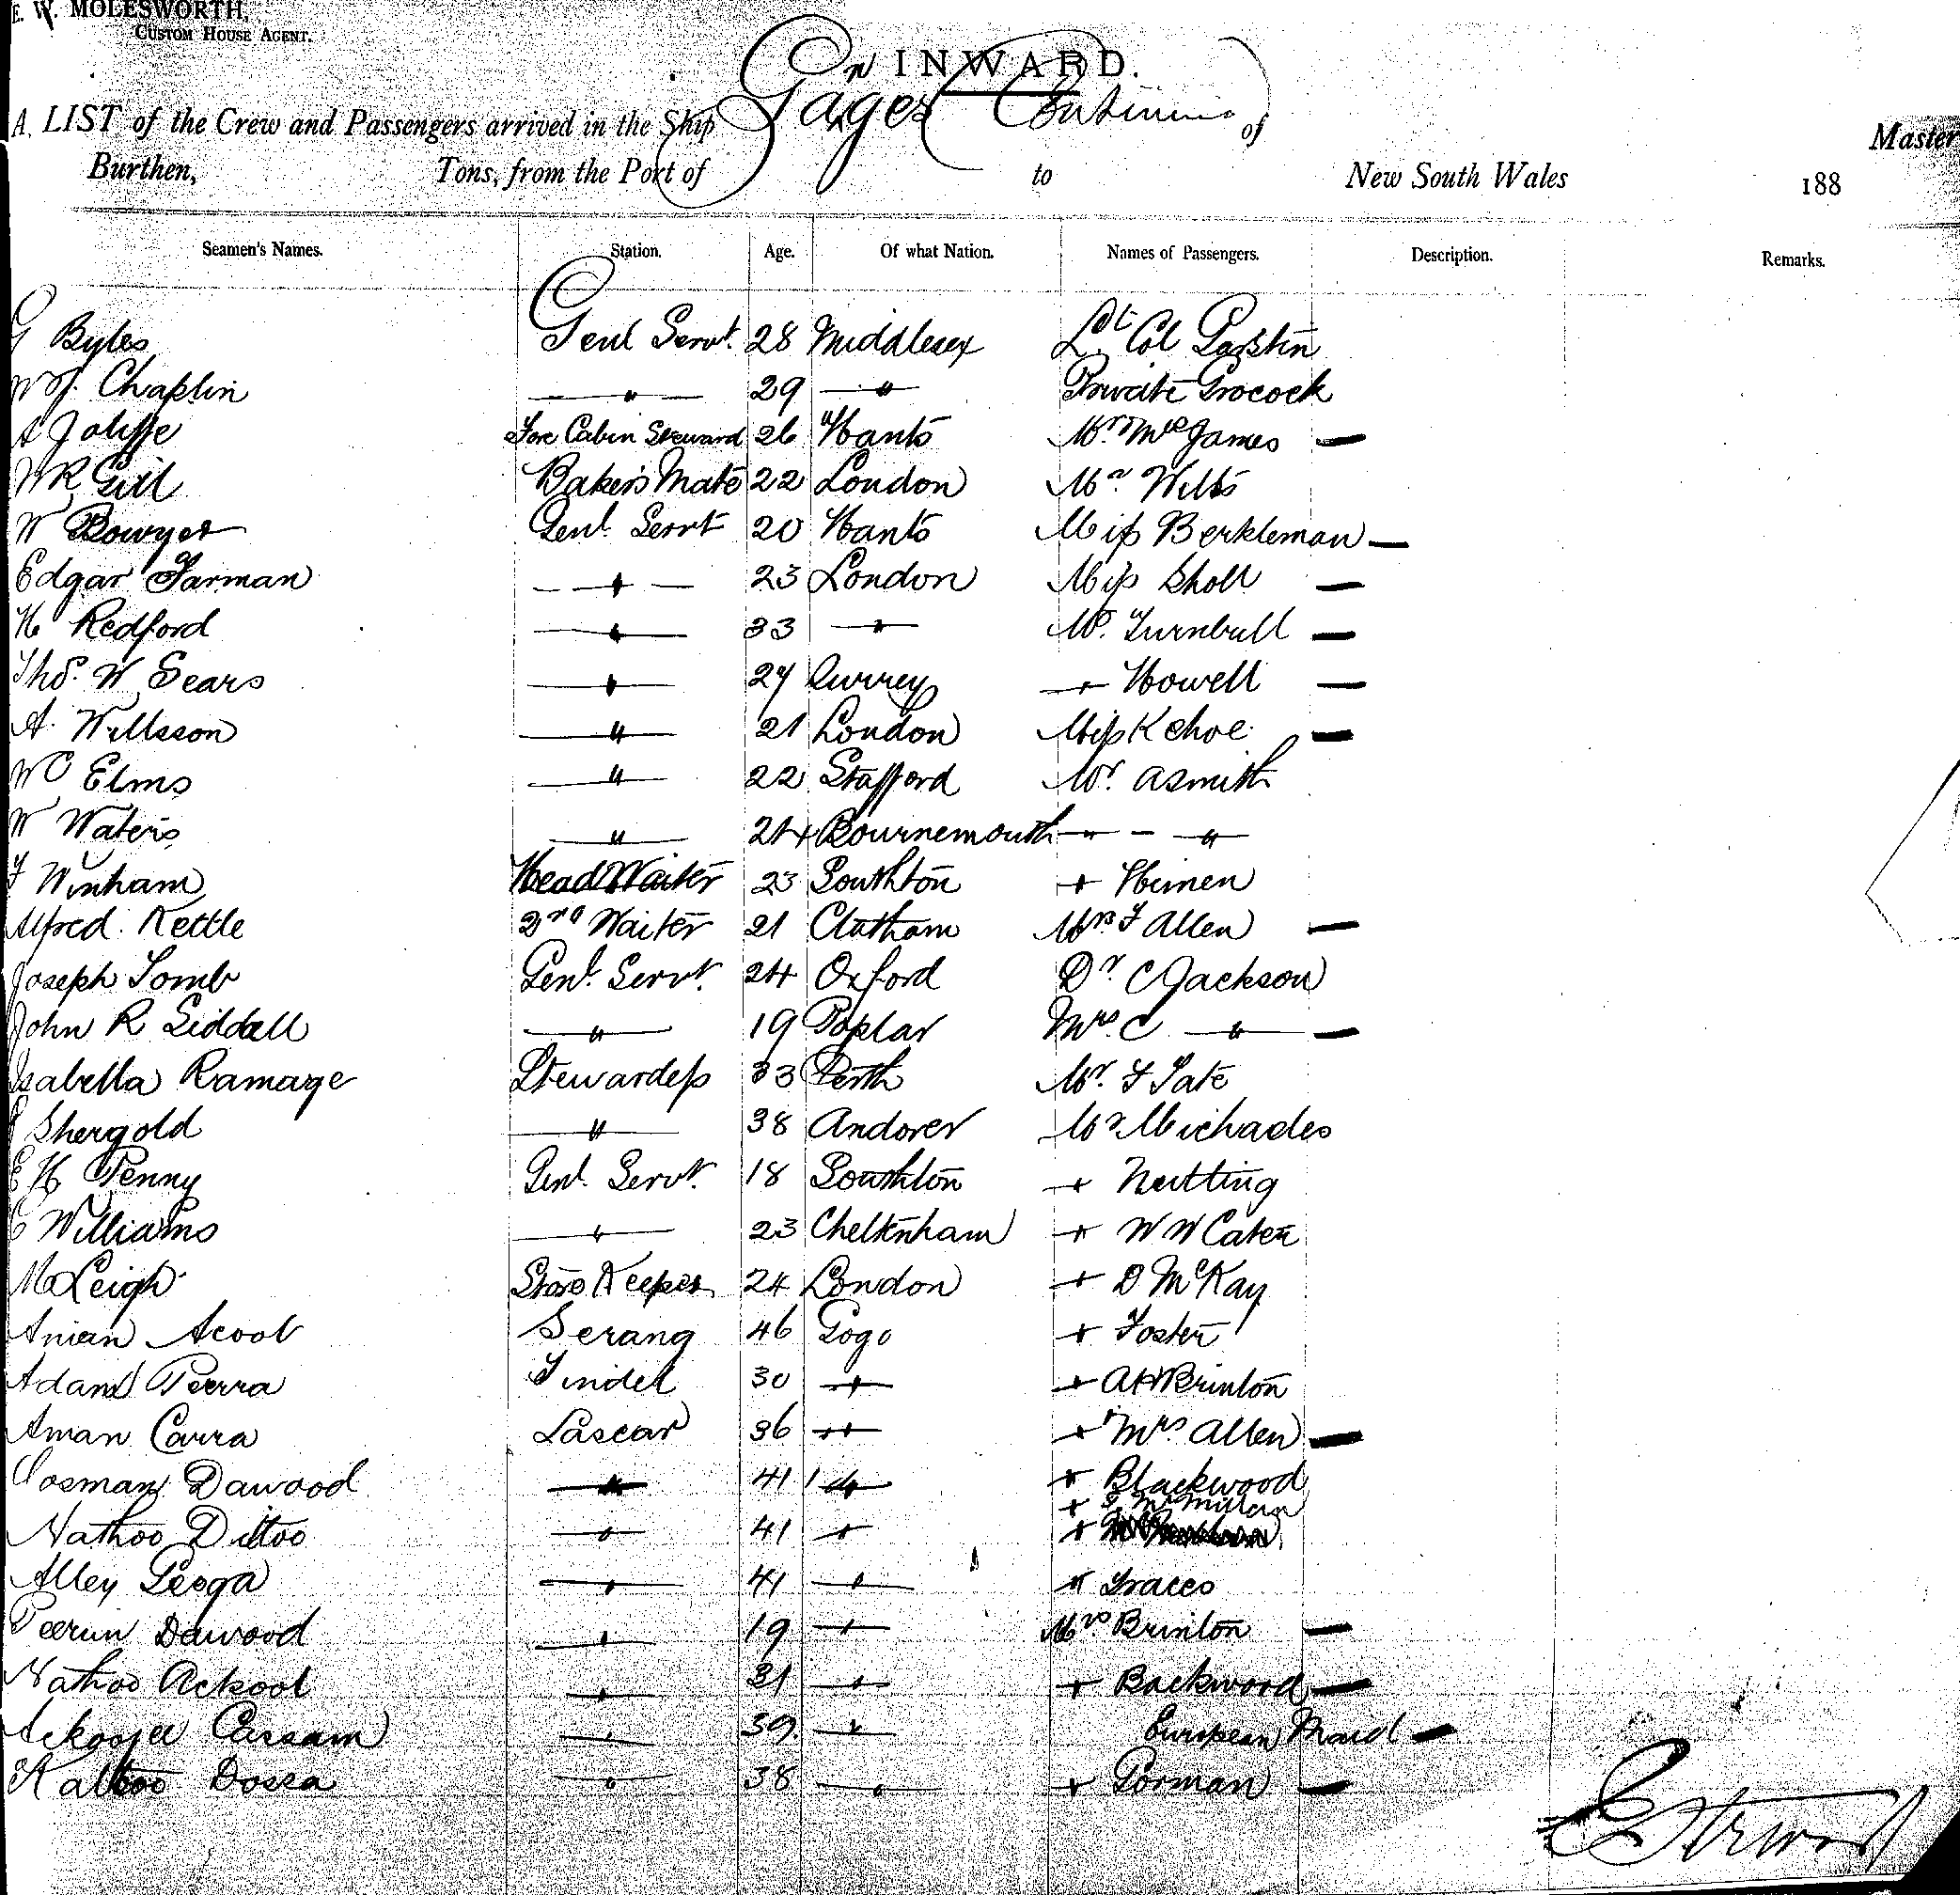 E. W. MOLESWORTH,
CUSTOM HOUSE AGENT.
INWARD.
A LIST of the Crew and Passengers arrived in the Ship Ganges Continued of Master
Burthen, Tons, from the Port of to New South Wales 188
Seamen's Names. Station. Age. Of what Nation. Names of Passengers. Description. Remarks.
G Byles Genl Servt. 28 Middlesex Lt Col Parstin
W J. Chaplin — " — 29 — " — Private Grocock
A Joliffe Fore Cabin Steward 26 Hants Mr Mrs James —
W R Gill Baker's Mate 22 London Mr Wills
W Bowyer Genl. Servt 20 Hants Miss Berkleman —
Edgar Farman — " — 23 London Miss Sholl —
H Redford — " — 33 — " — Mr. Turnbull —
Thos. W Sears — " — 27 Surrey — " Howell —
A. Willsson — " — 21 London Miss Kehoe —
W C Elms — " — 22 Stafford Mr. Asmith
W Waters — " — 24 Bournemouth — " — " —
F Winham Head Waiter 23 Southton " Hinen
Alfred Kettle 2nd Waiter 21 Chatham Mrs F Allen —
Joseph Tomb Genl. Servt. 24 Oxford Dr. C Jackson
John R Siddall — " — 19 Poplar Mrs. C — " — —
Isabella Ramage Stewardess 33 Perth Mr. F Tate
Shergold — " — 38 Andover Mr Michades
E H Penny Genl. Servt. 18 Southton " Nutting
C Williams — " — 23 Cheltenham " W W Cater
M Leigh Store Keeper 24 London " D McKay
Anian Acoob Serang 46 Gogo " Foster
Adam Peerra Tindel 30 — " — " A H Brinton
Aman Carra Lascar 36 — " — " Mrs. Allen —
Oosman Dawood — " — 41 — " — " Blackwood
" McMillan
Nathoo Dittoo — " — 41 — " — "
Alley Peoga — " — 41 — " — " Graces
Peerun Dawood — " — 19 — " — Mrs Brinton —
Nathoo Ackoob — " — 31 — " — " Backwood —
Ackoojee Cassam — " — 39. — " — European Maid —
Kalloo Dossa — " — 38 — " — " Gorman —